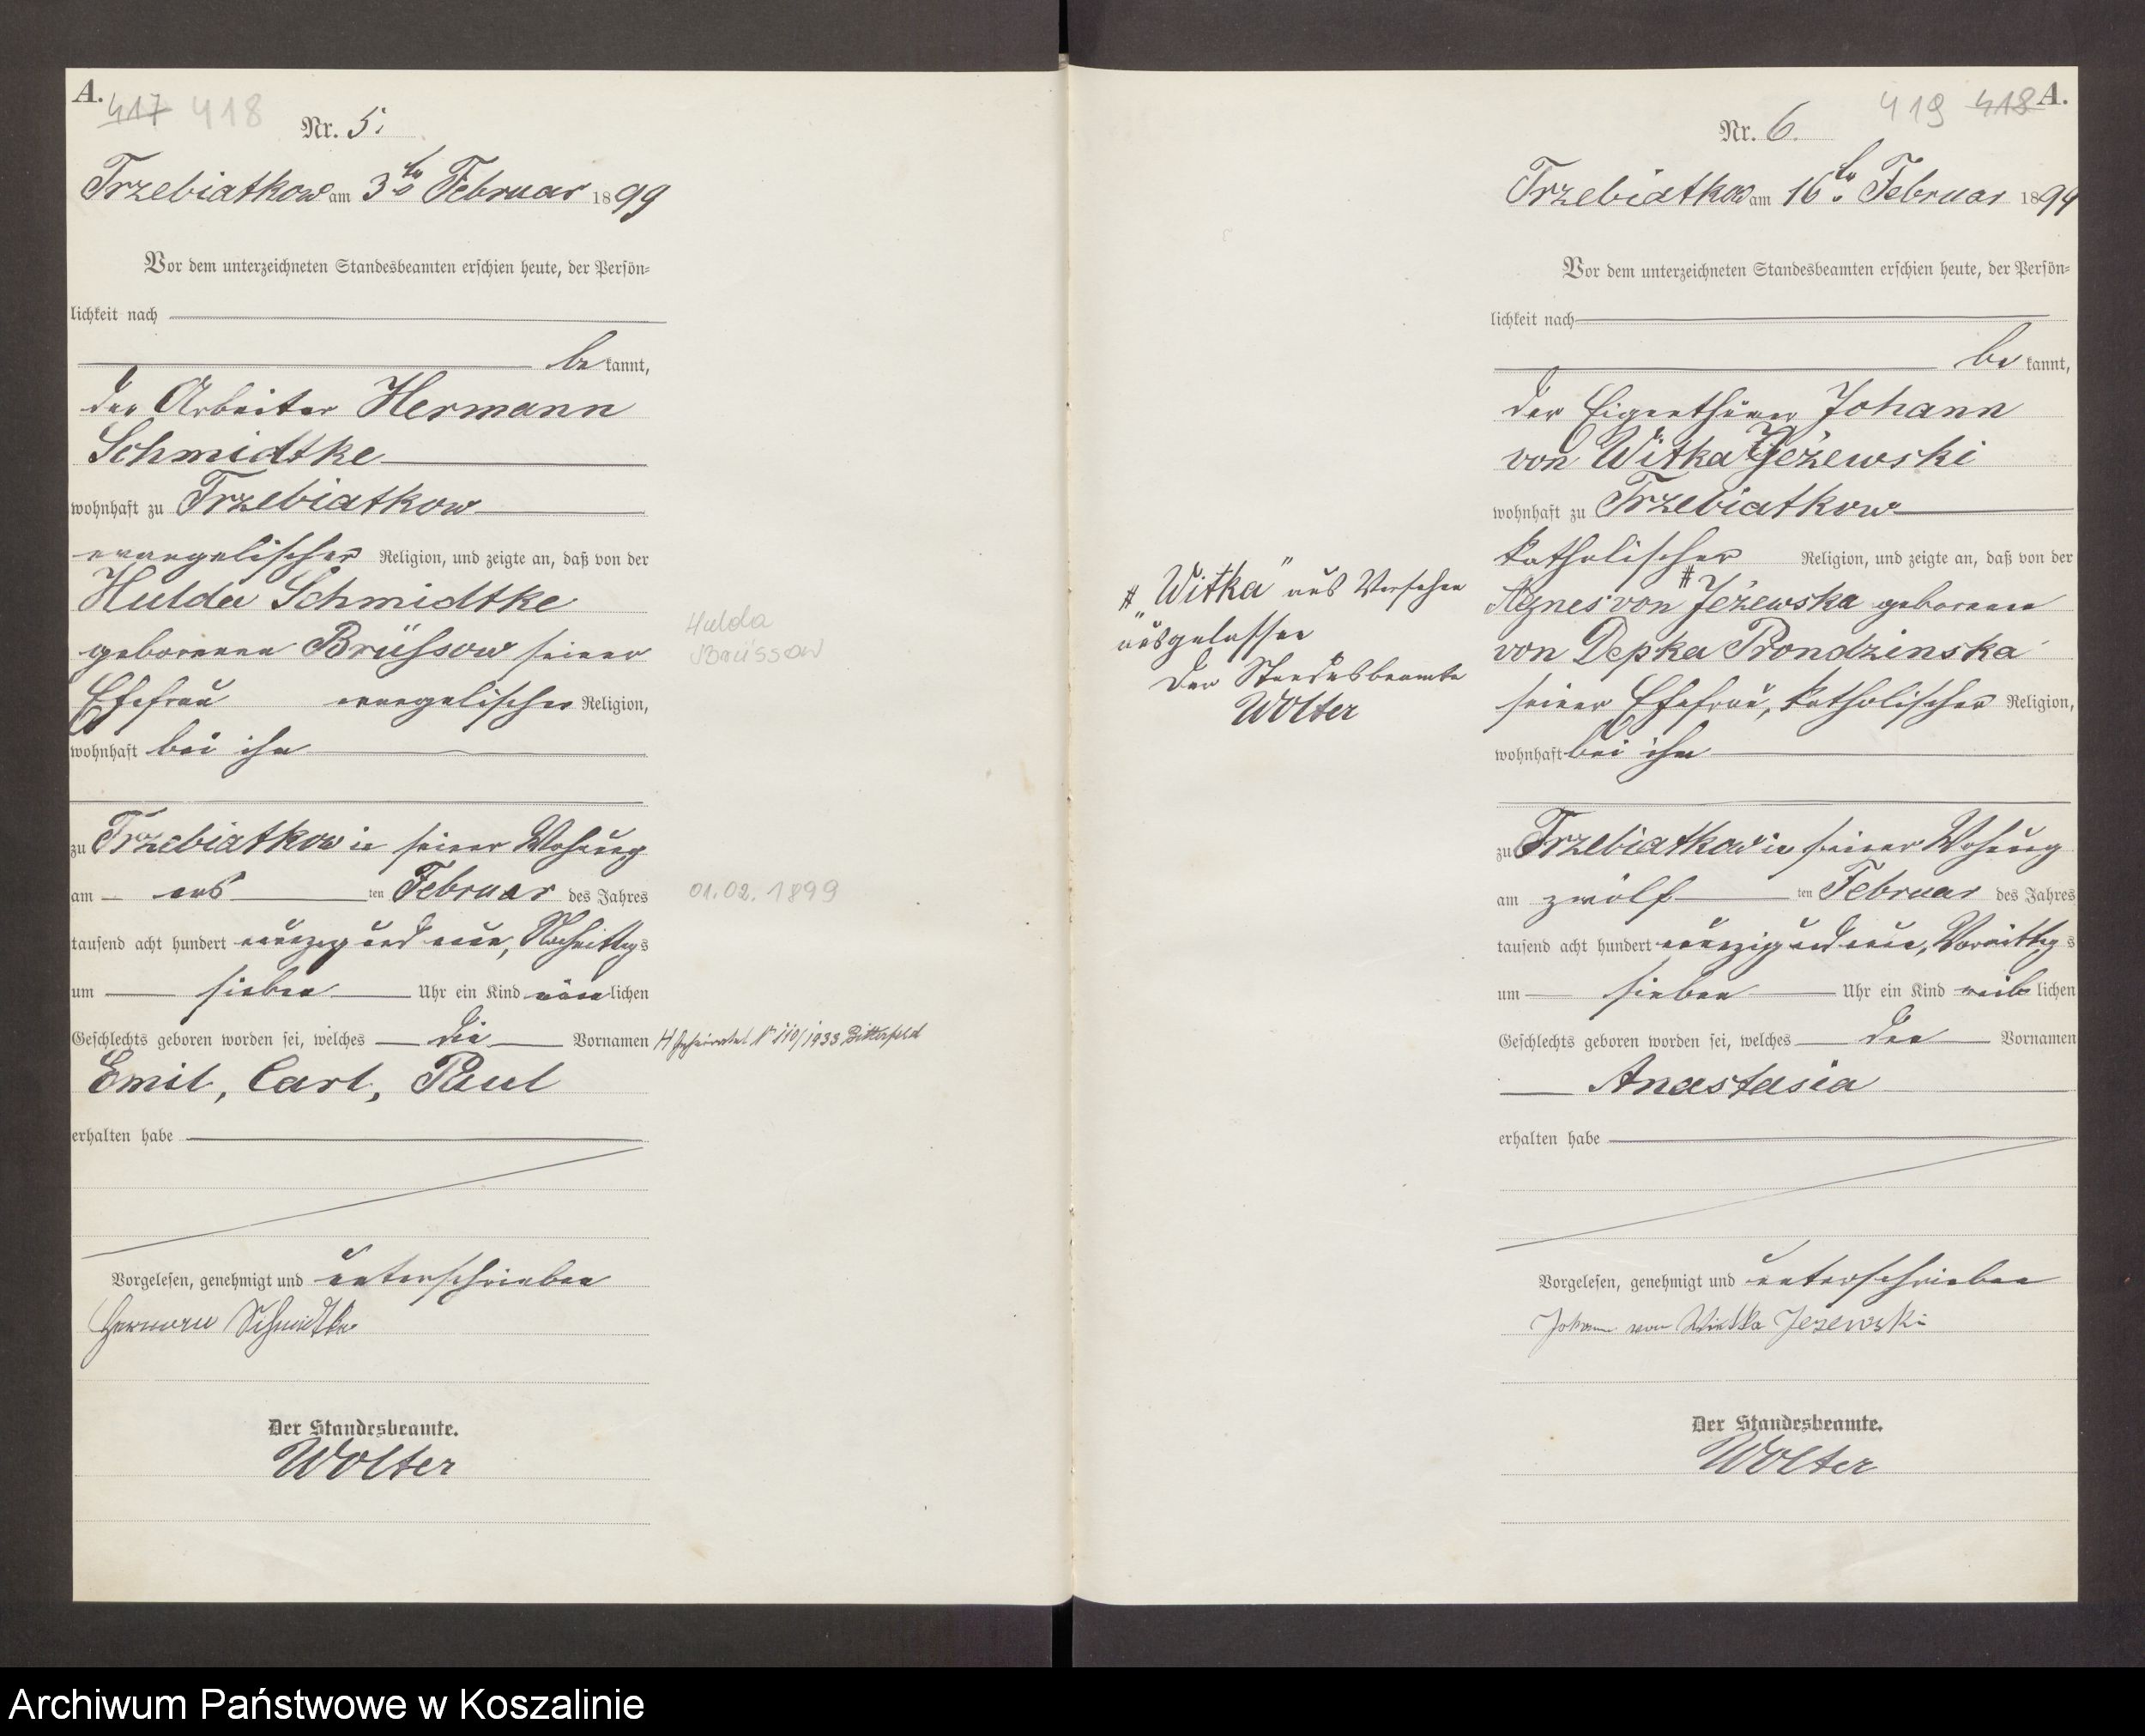 A.
417 418
Nr. 5.
Trzebiatkow am 3ten Februar 1899
Vor dem unterzeichneten Standesbeamten erschien heute, der Persön=
lichkeit nach
be kannt,
der Arbeiter Hermann
Schmidtke
wohnhaft zu Trzebiatkow
evangelischer Religion, und zeigte an, daß von der
Hulda Schmidtke
geborenen Brüssow seiner
Ehefrau evangelischer Religion,
wohnhaft bei ihm
zu Trzebiatkow in seiner Wohnung
am eins ten Februar des Jahres
tausend acht hundert neunzig und neun, Nachmittags
um sieben Uhr ein Kind männlichen
Geschlechts geboren worden sei, welches die Vornamen
Emil, Carl, Paul
erhalten habe
Vorgelesen, genehmigt und unterschrieben
Hermann Schmidtke
Der Standesbeamte.
Wolter
Hulda
Brüssow
01.02.1899
geheiratet Nr 110/1933 Bitterfeld
419 418 A.
Nr. 6.
Trzebiatkow am 16ten Februar 1899
Vor dem unterzeichneten Standesbeamten erschien heute, der Persön=
lichkeit nach
be kannt,
der Eigenthümer Johann
von Witka Jeżewski
wohnhaft zu Trzebiatkow
katholischer Religion, und zeigte an, daß von der
Agnes von # Jeżewska geborenen
von Depka Prondzinska
seiner Ehefrau, katholischer Religion,
wohnhaft bei ihm
zu Trzebiatkow in seiner Wohnung
am zwölf ten Februar des Jahres
tausend acht hundert neunzig und neun, Vormittags
um sieben Uhr ein Kind weiblichen
Geschlechts geboren worden sei, welches den Vornamen
Anastasia
erhalten habe
Vorgelesen, genehmigt und unterschrieben
Johann von Wiktka Jeżewski
Der Standesbeamte.
Wolter
# „Witka" aus Versehen
ausgelassen
Der Standesbeamte
Wolter
Archiwum Państwowe w Koszalinie